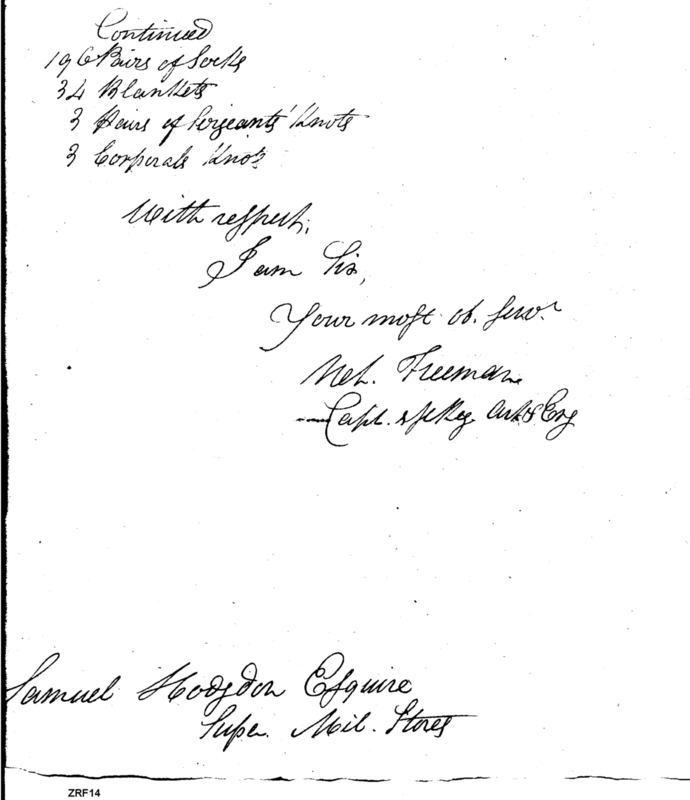 Continued
196 Pairs of Socks
34 Blankets
3 Pairs of Sergeants' Knots
3 Corporals Knots
With respect,
I am Sir,
Your most ob. serv.
Neh. Freeman
Capt. 1st Reg Art & Eng
Samuel Hodgdon Esquire
Super. Mil. Stores
ZRF14